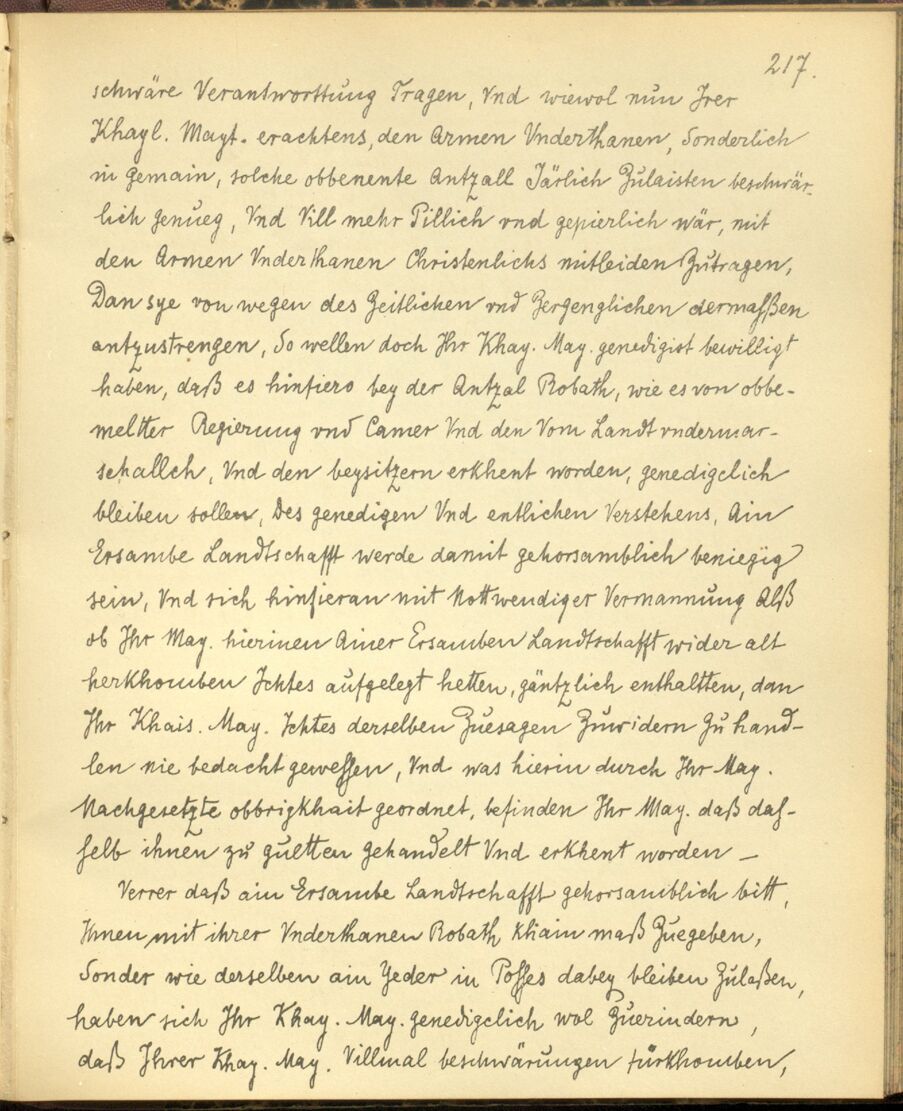 217.
schwäre Verantworttung Tragen, Vnd wiewol nun Irer
Khayl. Mayt. erachtens, den Armen Vnderthanen, Sonderlich
in gemain, solche obbenente Antzall Järlich Zulaisten beschwär-
lich genueg, Vnd Vill mehr Pillich vnd gepierlich wär, mit
den Armen Vnderthanen Christenlichs mitleiden Zutragen,
Dan sye von wegen des Zeitlichen vnd Zergenglichen dermassen
antzustrengen, So wellen doch Ihr Khay. May. genedigist bewilligt
haben, daß es hinfiero bey der Antzal Robath, wie es von obbe-
meltter Regierung vnd Camer Vnd den Vom Landt vndermar-
schallch, Vnd den beysitzern erkhent worden, genedigclich
bleiben sollen, Des genedigen Vnd entlichen Verstehens, Ain
Ersambe Landtschafft werde damit gehorsamblich beniegig
sein, Vnd sich hinfieran mit Nottwendiger Vermannung Alß
ob Ihr May. hierinen Ainer Ersamben Landtschafft wider alt
herkhomben Ichtes aufgelegt hetten, gäntzlich enthaltten, dan
Ihr Khais. May. Ichtes derselben Zuesagen Zuwidern Zu hand-
len nie bedacht gewessen, Vnd was hierin durch Ihr May.
Nachgesetzte obbrigkhait geordnet, befinden Ihr May. daß das-
selb ihnen zu guetten gehandelt Vnd erkhent worden –
Verrer daß ain Ersambe Landtschafft gehorsamblich bitt,
Ihnen mit ihrer Vnderthanen Robath khain maß Zuegeben,
Sonder wie derselben ain Yeder in Posses dabey bleiben Zulaßen,
haben sich Ihr Khay. May. genedigclich wol Zuerindern,
daß Ihrer Khay. May. Villmal beschwärungen fürkhomben,